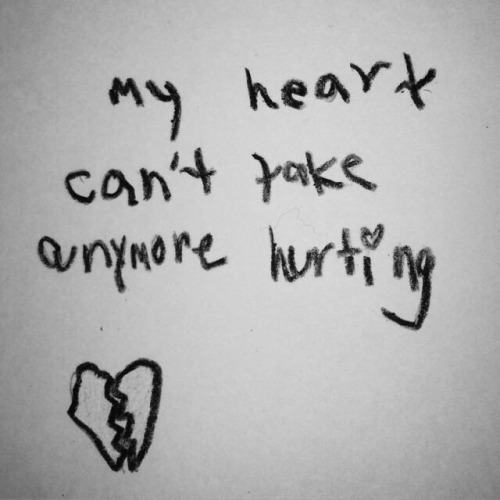 my heart
can't take
anymore hurting